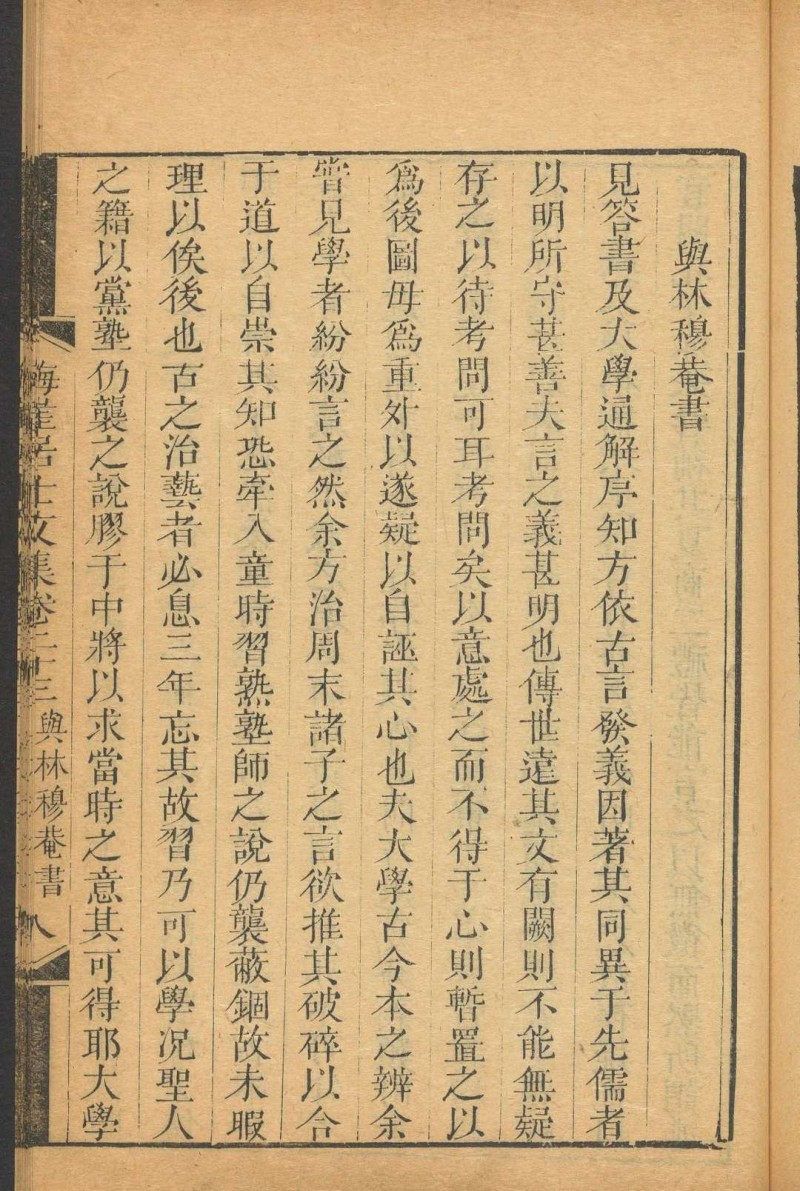 與林穆菴書
見答書及大學通解序知方依古言發義因著其同異于先儒者
以明所守甚善夫言之義甚明也傳世遠其文有闕則不能無疑
存之以待考問可耳考問矣以意處之而不得于心則暫置之以
爲後圖毋爲重外以遂疑以自誣其心也夫大學古今本之辨余
嘗見學者紛紛言之然余方治周末諸子之言欲推其破碎以合
于道以自崇其知恐牽入童時習熟塾師之說仍襲蔽錮故未暇
理以俟後也古之治藝者必息三年忘其故習乃可以學况聖人
之籍以黨塾仍襲之說膠于中將以求當時之意其可得耶大學
梅崖居士文集卷二十三 與林穆菴書 八